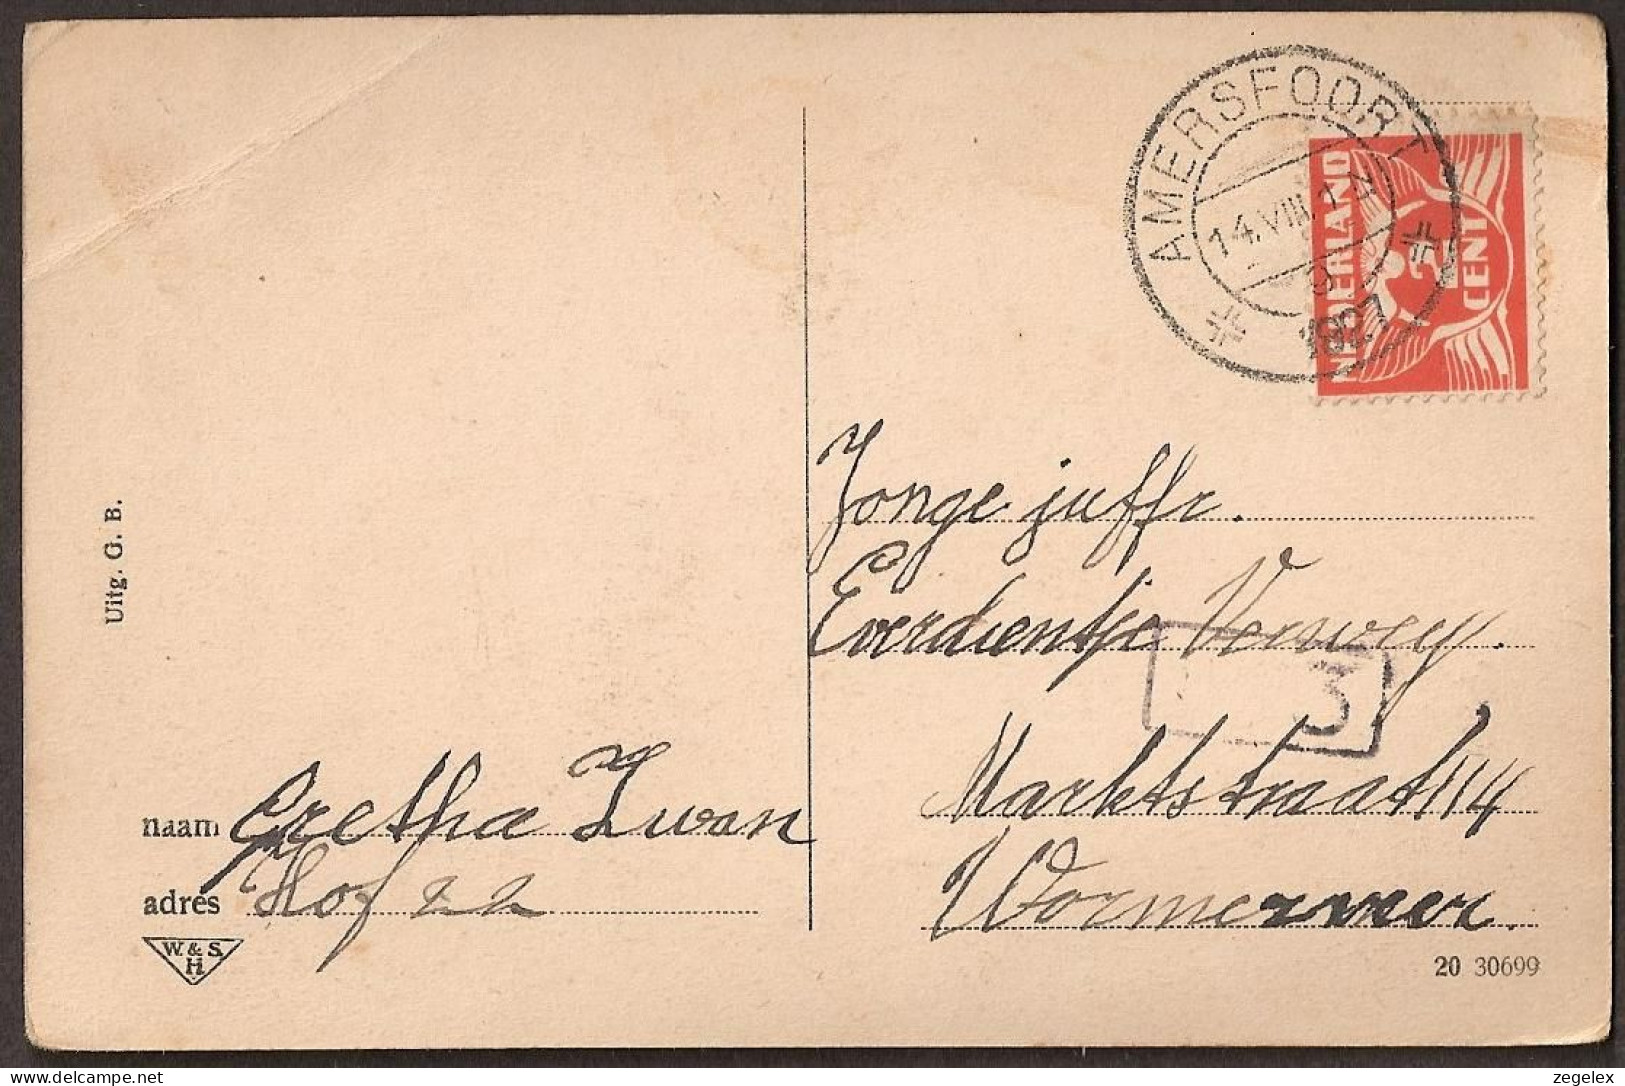 AMERSFOORT
14.VIII.1 N
1927
NEDERLAND
3 CENT
Uitg. G. B.
Jonge juffr.
Everdientje Verweij.
3
Marktstraat 114
Wormerveer.
naam Gretha Zwan
adres Hof 22
W. & S.
H
20 30699
zegelex